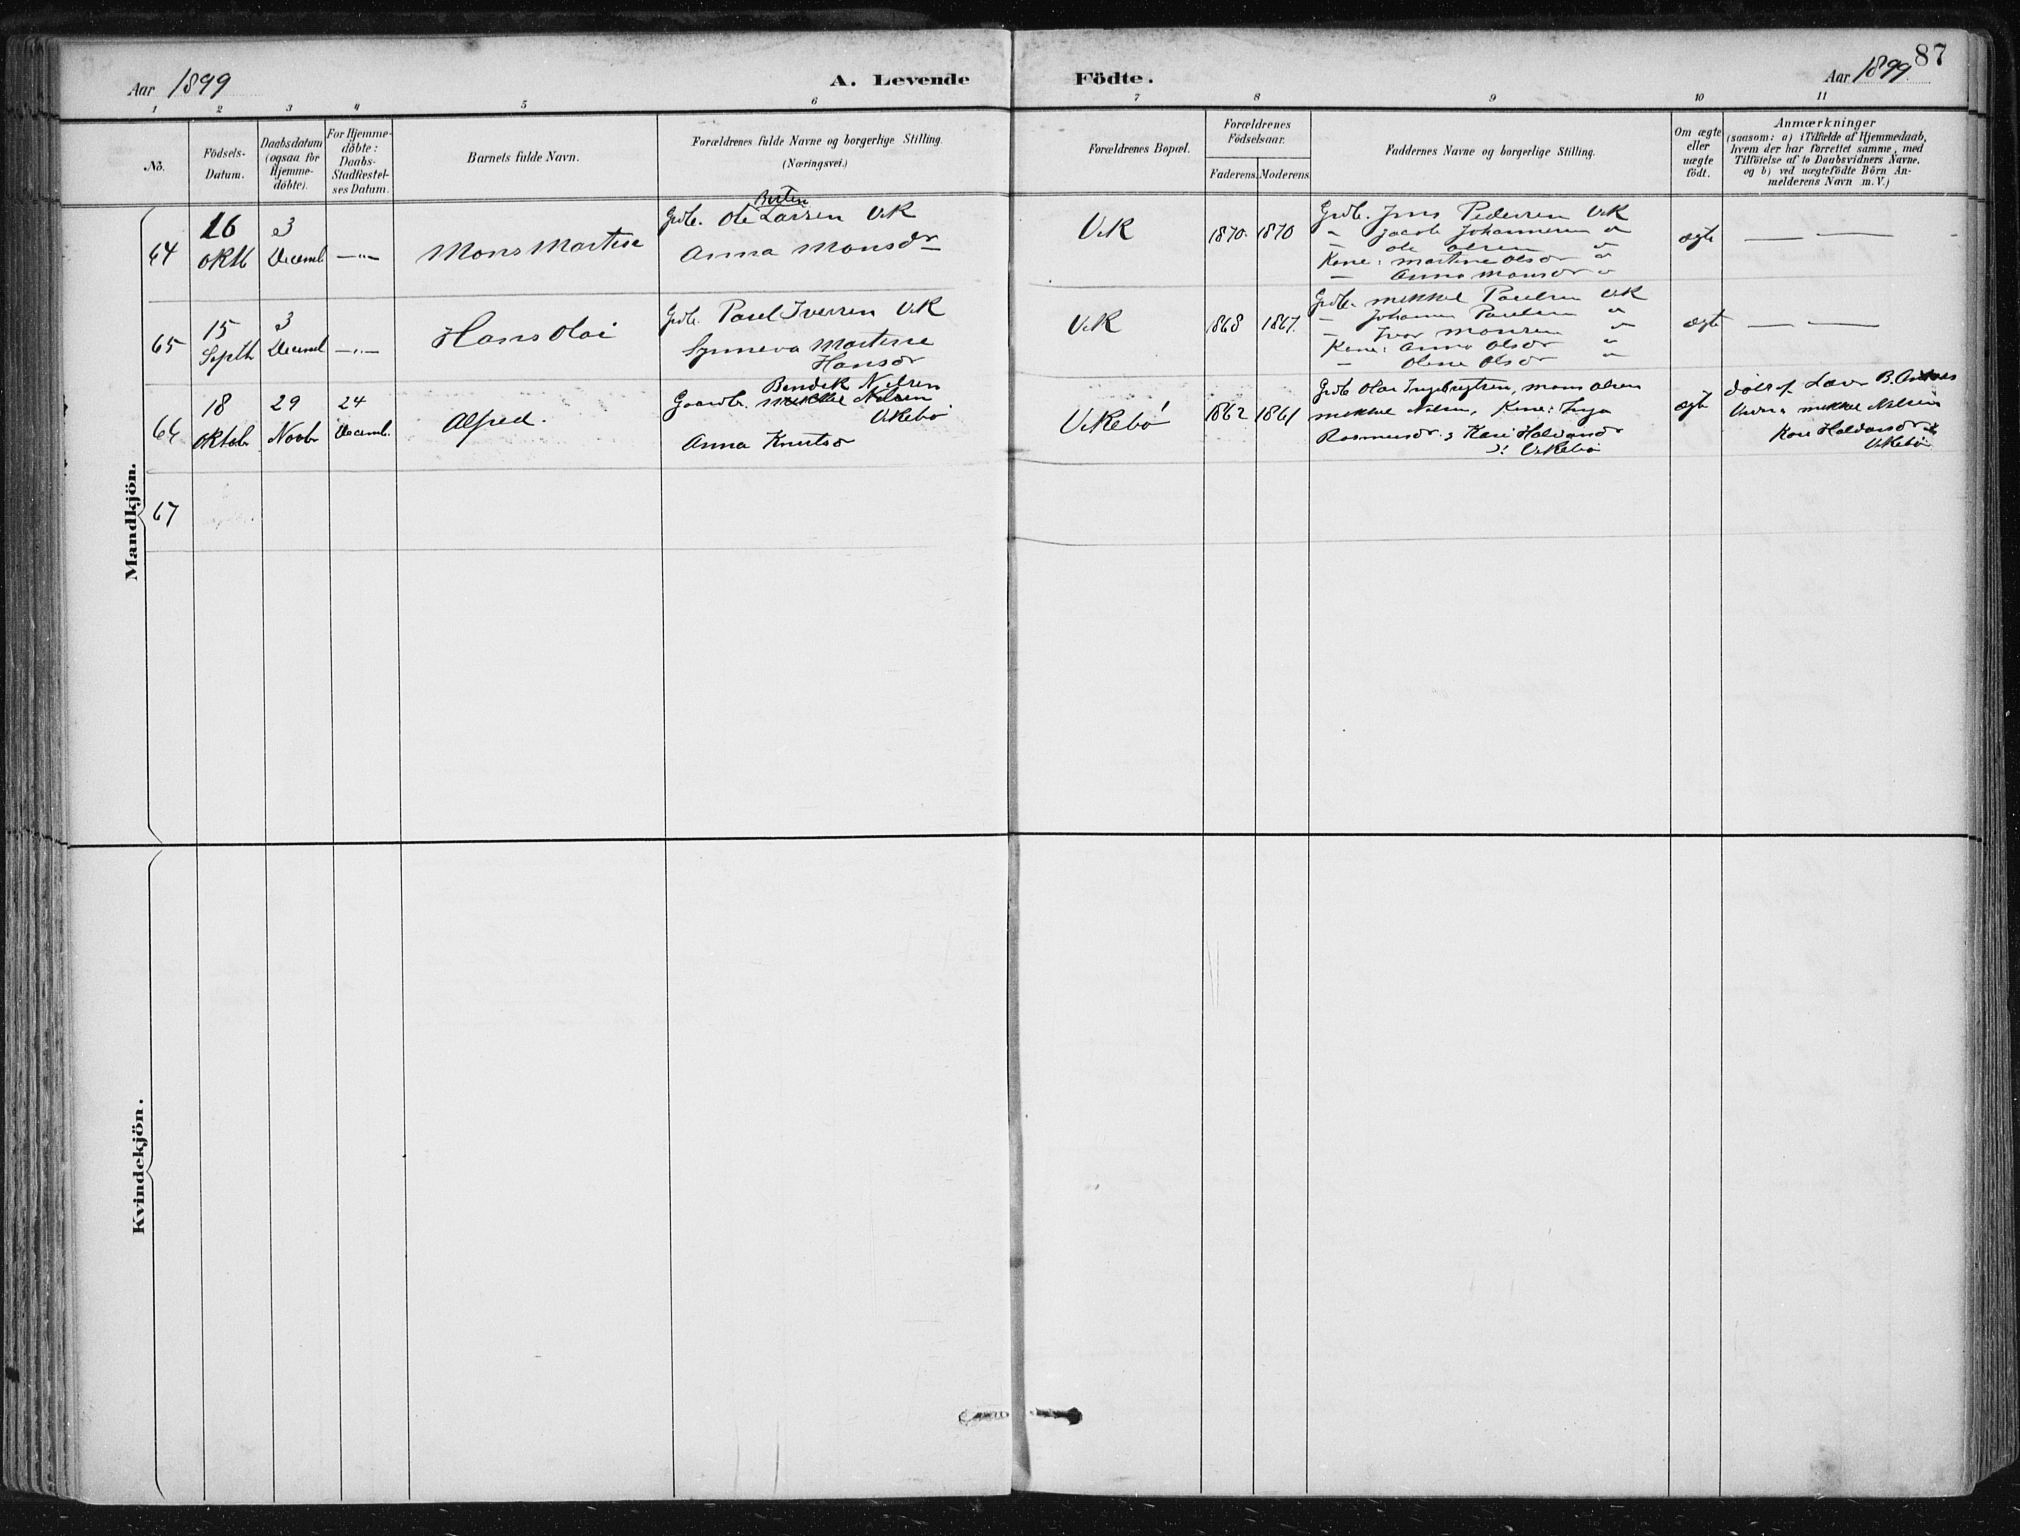 87
Aar 1899
A. Levende
Födte.
Aar 1899
1 2 3 4 5 6 7 8 9 10 11
No.
Födsels-
Datum.
Daabsdatum
(ogsaa for
Hjemme-
döbte).
For Hjemme-
döbte:
Daabs-
Stadfæstel-
ses Datum.
Barnets fulde Navn.
Forældrenes fulde Navne og borgerlige Stilling.
(Næringsvei.)
Forældrenes Bopæl.
Forældrenes
Födselsaar.
Faderens. Moderens
Faddernes Navne og borgerlige Stilling.
Om ægte
eller
uægte
födt.
Anmærkninger
(saasom: a) i Tilfælde af Hjemmedaab,
hvem der har forrettet samme, med
Tilföielse af to Daabsvidners Navne.
og b) ved uægtefödte Börn An-
melderens Navn m. V.)
Mandkjön.
64
16
oktb
3
Decemb
—„—
Mons Martin
Grdb. Ole Larsen Vik
Anna Monsdr
Vik
1870. 1870
Grdb. Jens Pedersen Vik
— Jacob Johannesen "
— Ole Olsen "
Kone: Martine Olsdr "
— Anna Monsdr "
ægte
— —
65
15
Septb
3
Decemb
—„—
Hans Olai
Grdb. Paul Iversen Vik
Synneva Martine
Hansdr
Vik
1868 1867.
Grdb. Mikkel Paulsen Vik
— Johannes Paulsen "
— Iver Monsen "
Kone: Anna Olsdr "
— Oline Olsdr "
ægte
— —
66
18
Oktob
29
Novbr
24
Decemb.
Alfred.
Bendik Nilsen
Gaardb. Mikkel Nilsen
Vikebö
Anna Knutsdr
Vikebö
1862 1861
Grdb Olai Ingebrigtsen, Mons Olsen
Mikkel Nilsen, Kone: Inga
Rasmusdr. & Kari Halvansdr
Vikebö
ægte
Döbt af Lærer B.
Vidner Mikkel Nilsen
Kari Haldansdr
Vikebö
67
Kvindekjön.